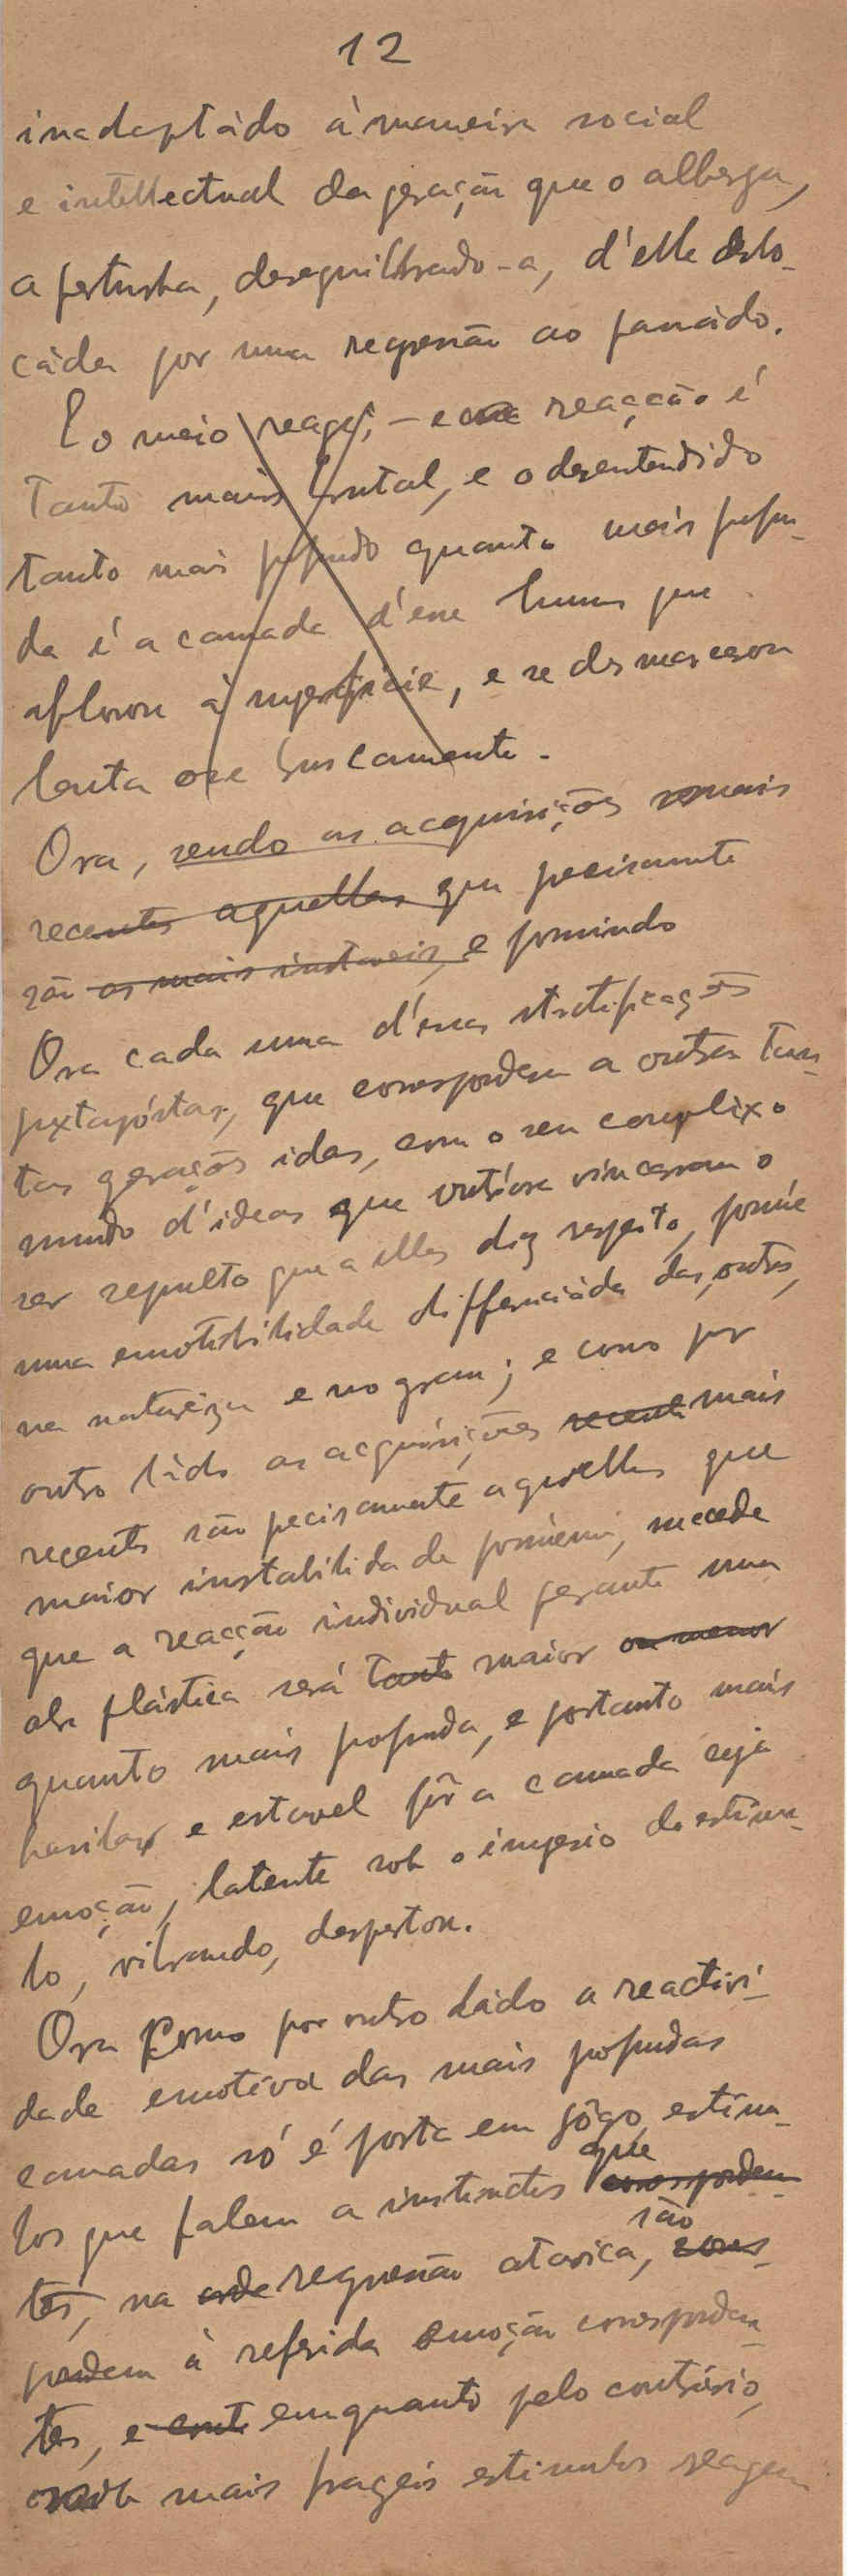 12
inadaptádo á maneira social
e intellectual da geração que o alberga,
a perturba, desequilibrado-a, d'elle deslo-
cáda por uma regressão ao passádo.
E o meio reage, – e essa reacção é
tanto mais brutal, e o desentendido
tanto mais profundo quanto mais profun-
da é a camada d'esse humus que
aflorou á superficie, e se desmascarou
lenta ou bruscamente.
Ora, sendo as acquisições mais
recentes aquellas que precisamente
são as mais instaveis, e possuindo
Ora cada uma d'essas stratificações
juxtapóstas, que correspondem a outras tan-
tas gerações idas, com o seu complexo
mundo d'ideas que outróra vincaram o
ser sepulto que a ellas diz respeito, possúe
uma emotibilidade differenciáda das outras,
na naturêza e no grau; e como por
outro ládo as acquisições recente mais
recentes são precisamente aquellas que
maior instabilidade possúem, succede
que a reacção individual perante uma
obra plástica será tanto maior ou menor
quanto mais profunda, e portanto mais
basilar e estavel fôr a camada cuja
emoção, latente sob o imperio do estimu-
lo, vibrando, despertou.
Ora como por outro ládo a reactivi-
dade emotiva das mais profundas
camadas só é posta em jôgo estimu-
los que falem a instinctos que corresponden-
tes, na onda regressão atavica, são corres-
pondem á referida emoção corresponden-
tes, e enquanto pelo contrário,
mais frageis estimulos reagem